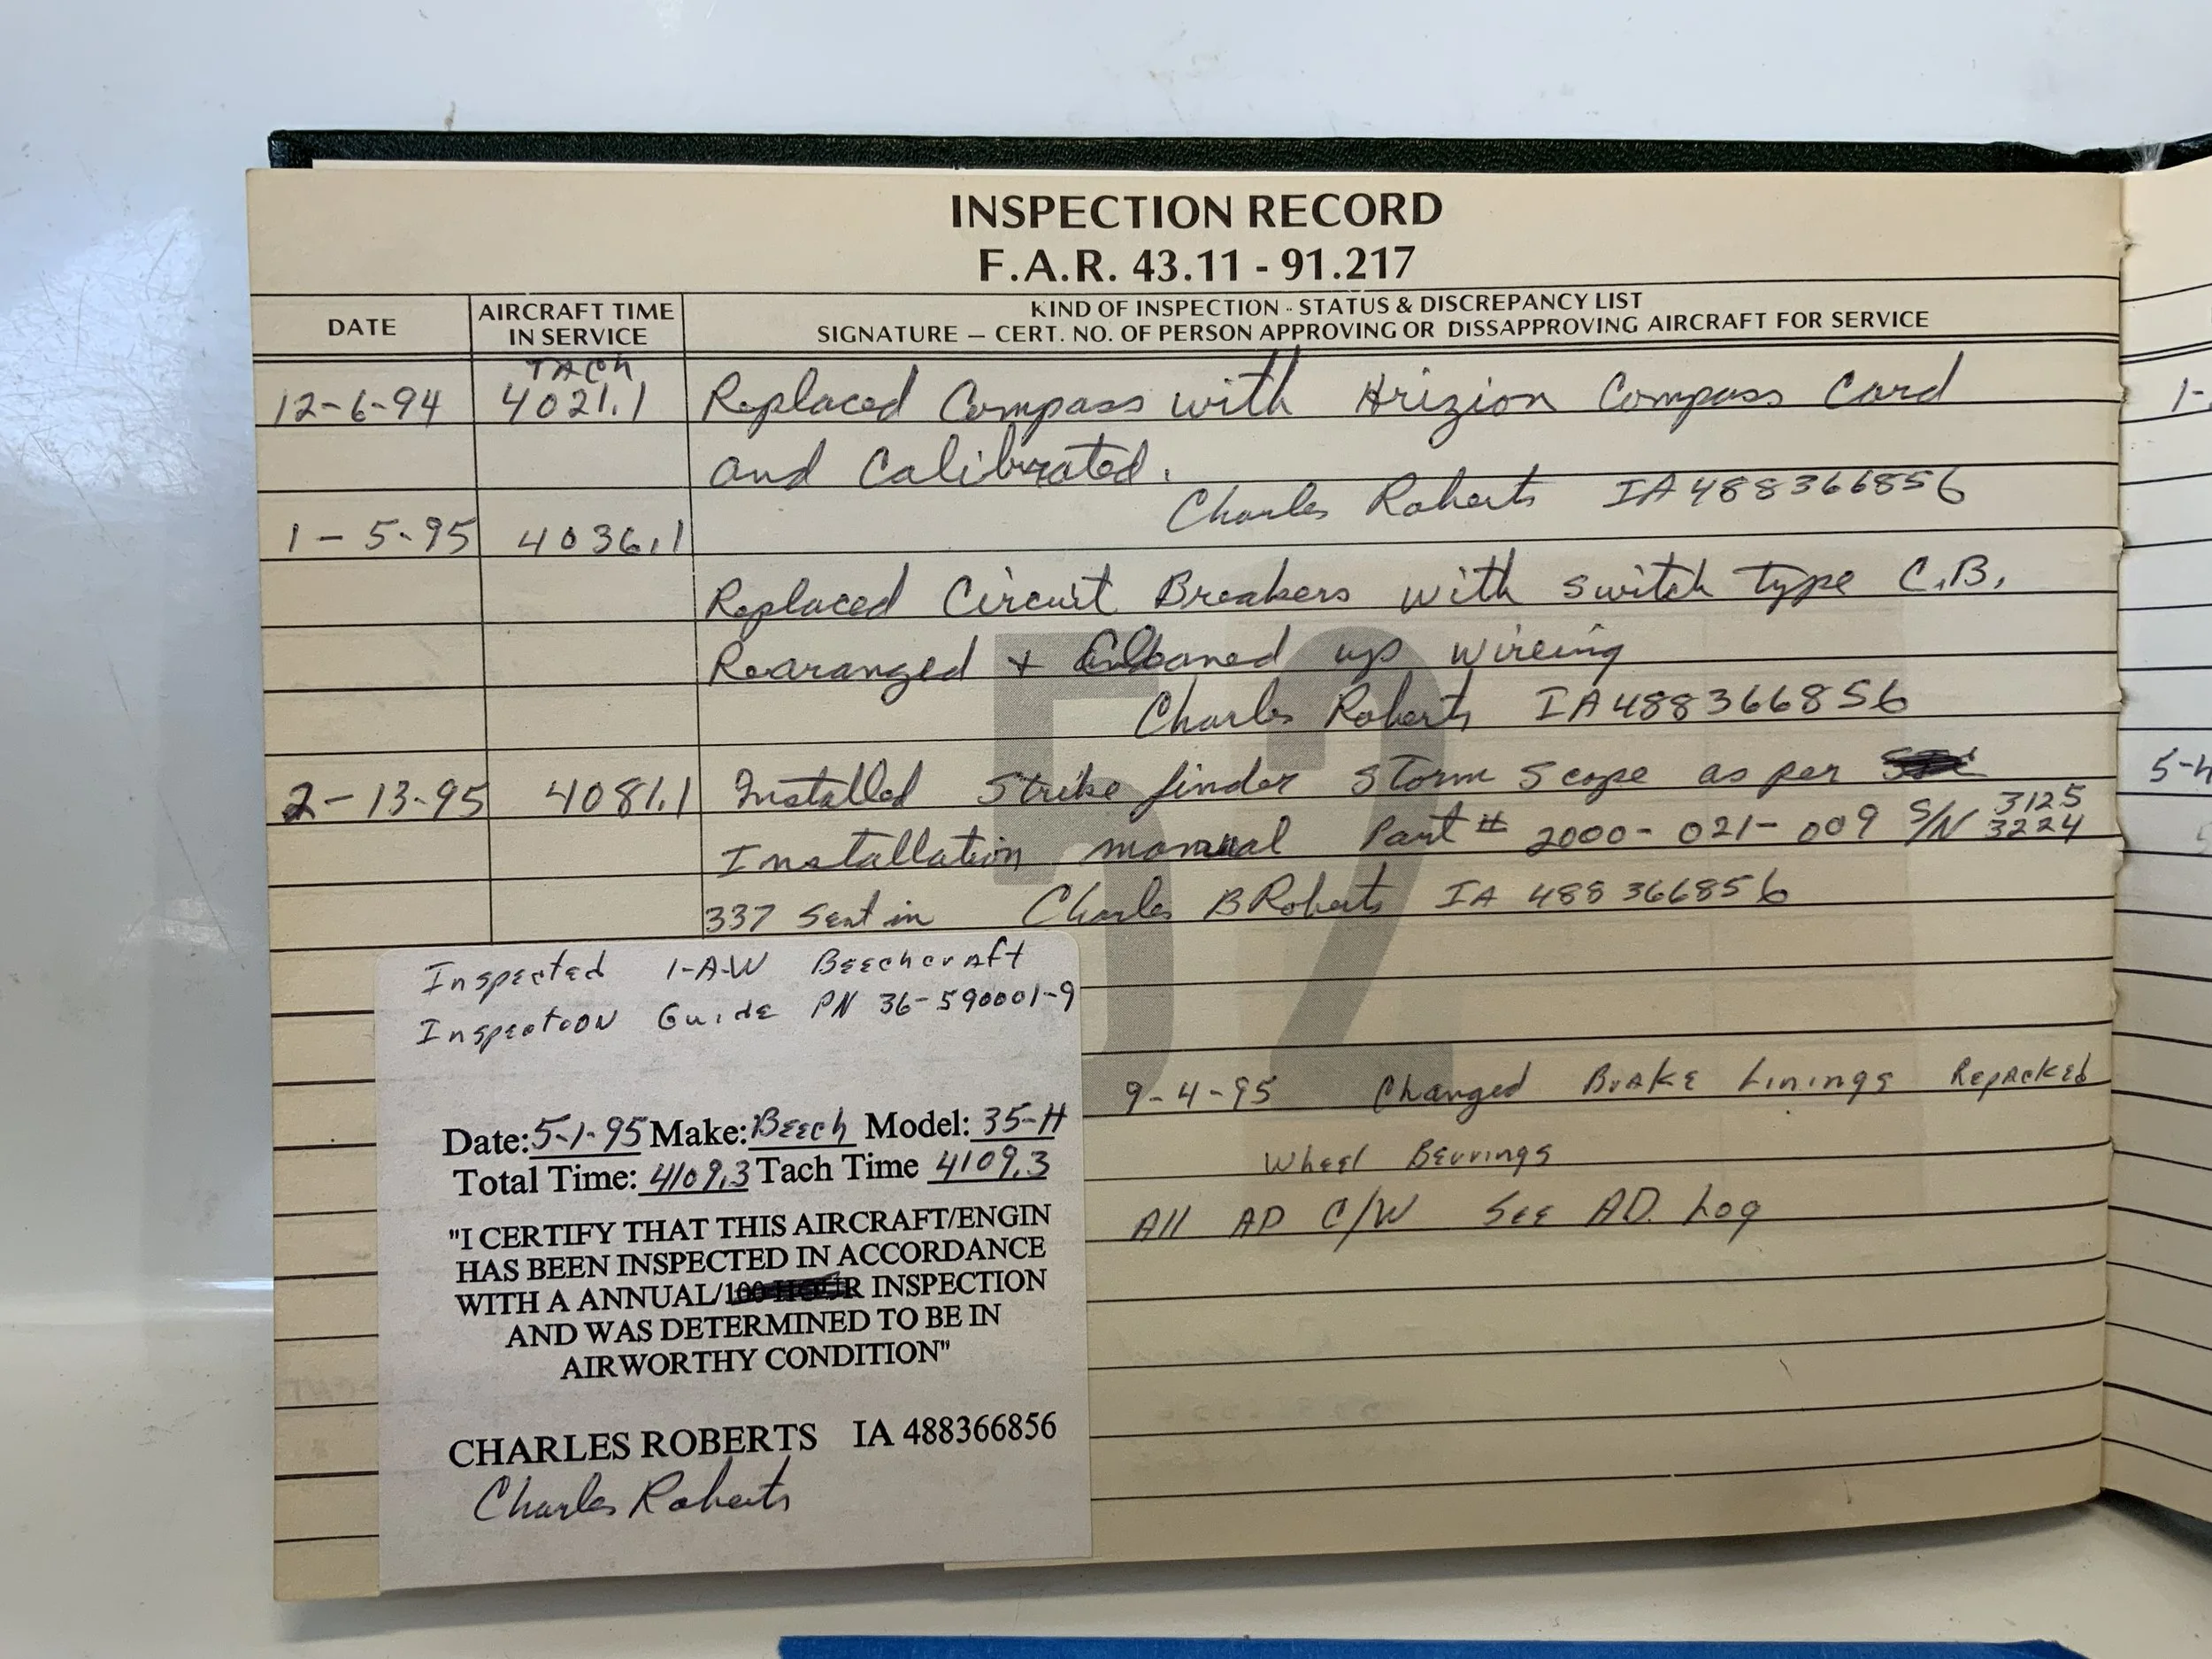 INSPECTION RECORD
F.A.R. 43.11 - 91.217
DATE
AIRCRAFT TIME
IN SERVICE
KIND OF INSPECTION - STATUS & DISCREPANCY LIST
SIGNATURE — CERT. NO. OF PERSON APPROVING OR DISSAPPROVING AIRCRAFT FOR SERVICE
TACH
12-6-94 4021.1 Replaced Compass with Hrizion Compass Card
and Calibrated.
Charles Roberts IA488366856
1-5-95 4036.1
Replaced Circuit Breakers with switch type C.B.
Rearanged + Cleaned up wireing
Charles Roberts IA488366856
2-13-95 4081.1 Installed Strike finder Storm Scope as per
Installation manual Part # 2000-021-009 S/N 3125
3224
337 Sent in Charles B Roberts IA 488366856
52
Inspected I-A-W Beechcraft
Inspection Guide PN 36-590001-9
Date: 5-1-95 Make: Beech Model: 35-H
Total Time: 4109.3 Tach Time 4109.3
"I CERTIFY THAT THIS AIRCRAFT/ENGIN
HAS BEEN INSPECTED IN ACCORDANCE
WITH A ANNUAL/100 HOUR INSPECTION
AND WAS DETERMINED TO BE IN
AIRWORTHY CONDITION"
CHARLES ROBERTS IA 488366856
Charles Roberts
9-4-95 Changed Brake Linings Repacked
Wheel Bearings
All AD C/W See AD. Log
1-
5-4